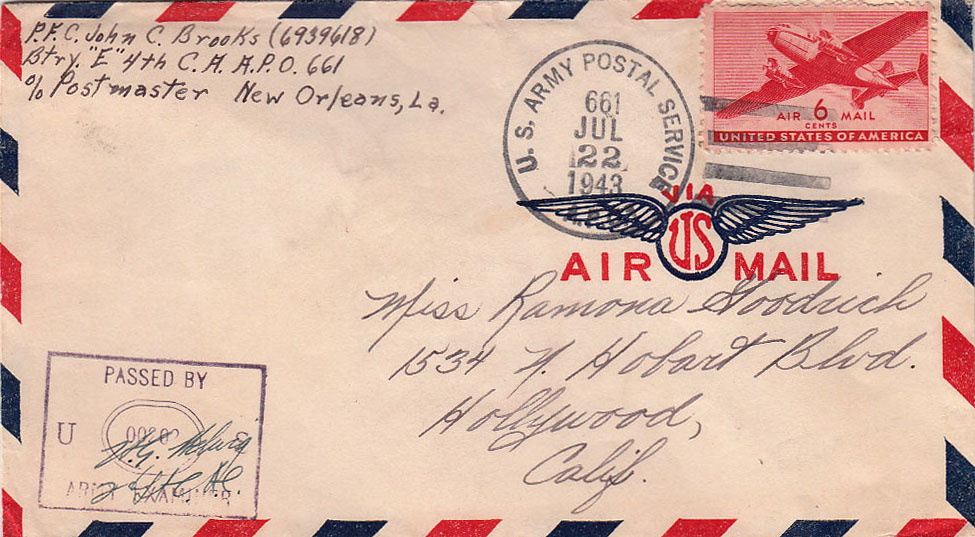 P.F.C. John C. Brooks (6939618)
Btry. "E" 4th C.A. A.P.O. 661
c/o Postmaster New Orleans, La.
U.S. ARMY POSTAL SERVICE
661
JUL
22
1943
AIR 6 MAIL
CENTS
UNITED STATES OF AMERICA
VIA
US
AIR MAIL
Miss Ramona Goodrich
1534 N. Hobart Blvd.
Hollywood,
Calif.
PASSED BY
U S
ARMY EXAMINER